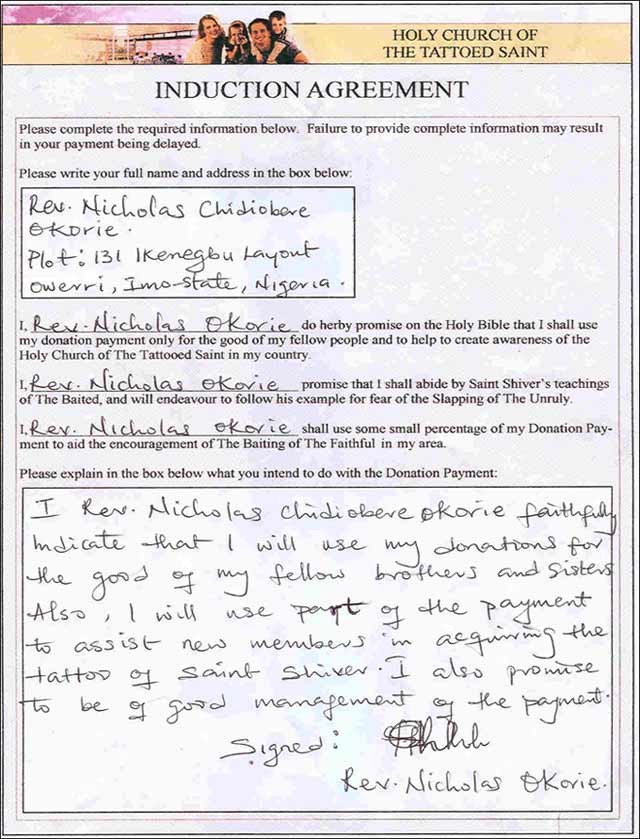 HOLY CHURCH OF
THE TATTOED SAINT
INDUCTION AGREEMENT
Please complete the required information below. Failure to provide complete information may result
in your payment being delayed.
Please write your full name and address in the box below:
Rev. Nicholas Chidiobere
Okorie.
Plot: 131 Ikenegbu Layout
Owerri, Imo-State, Nigeria.
I, Rev. Nicholas Okorie do herby promise on the Holy Bible that I shall use
my donation payment only for the good of my fellow people and to help to create awareness of the
Holy Church of The Tattooed Saint in my country.
I, Rev. Nicholas Okorie promise that I shall abide by Saint Shiver's teachings
of The Baited, and will endeavour to follow his example for fear of the Slapping of The Unruly.
I, Rev. Nicholas Okorie shall use some small percentage of my Donation Pay-
ment to aid the encouragement of The Baiting of The Faithful in my area.
Please explain in the box below what you intend to do with the Donation Payment:
I Rev. Nicholas Chidiobere Okorie faithfully
Indicate that I will use my donations for
the good of my fellow brothers and Sisters
Also, I will use part of the payment
to assist new members in acquiring the
tattoo of Saint Shiver. I also promise
to be of good management of the payment.
Signed:
Rev. Nicholas Okorie.